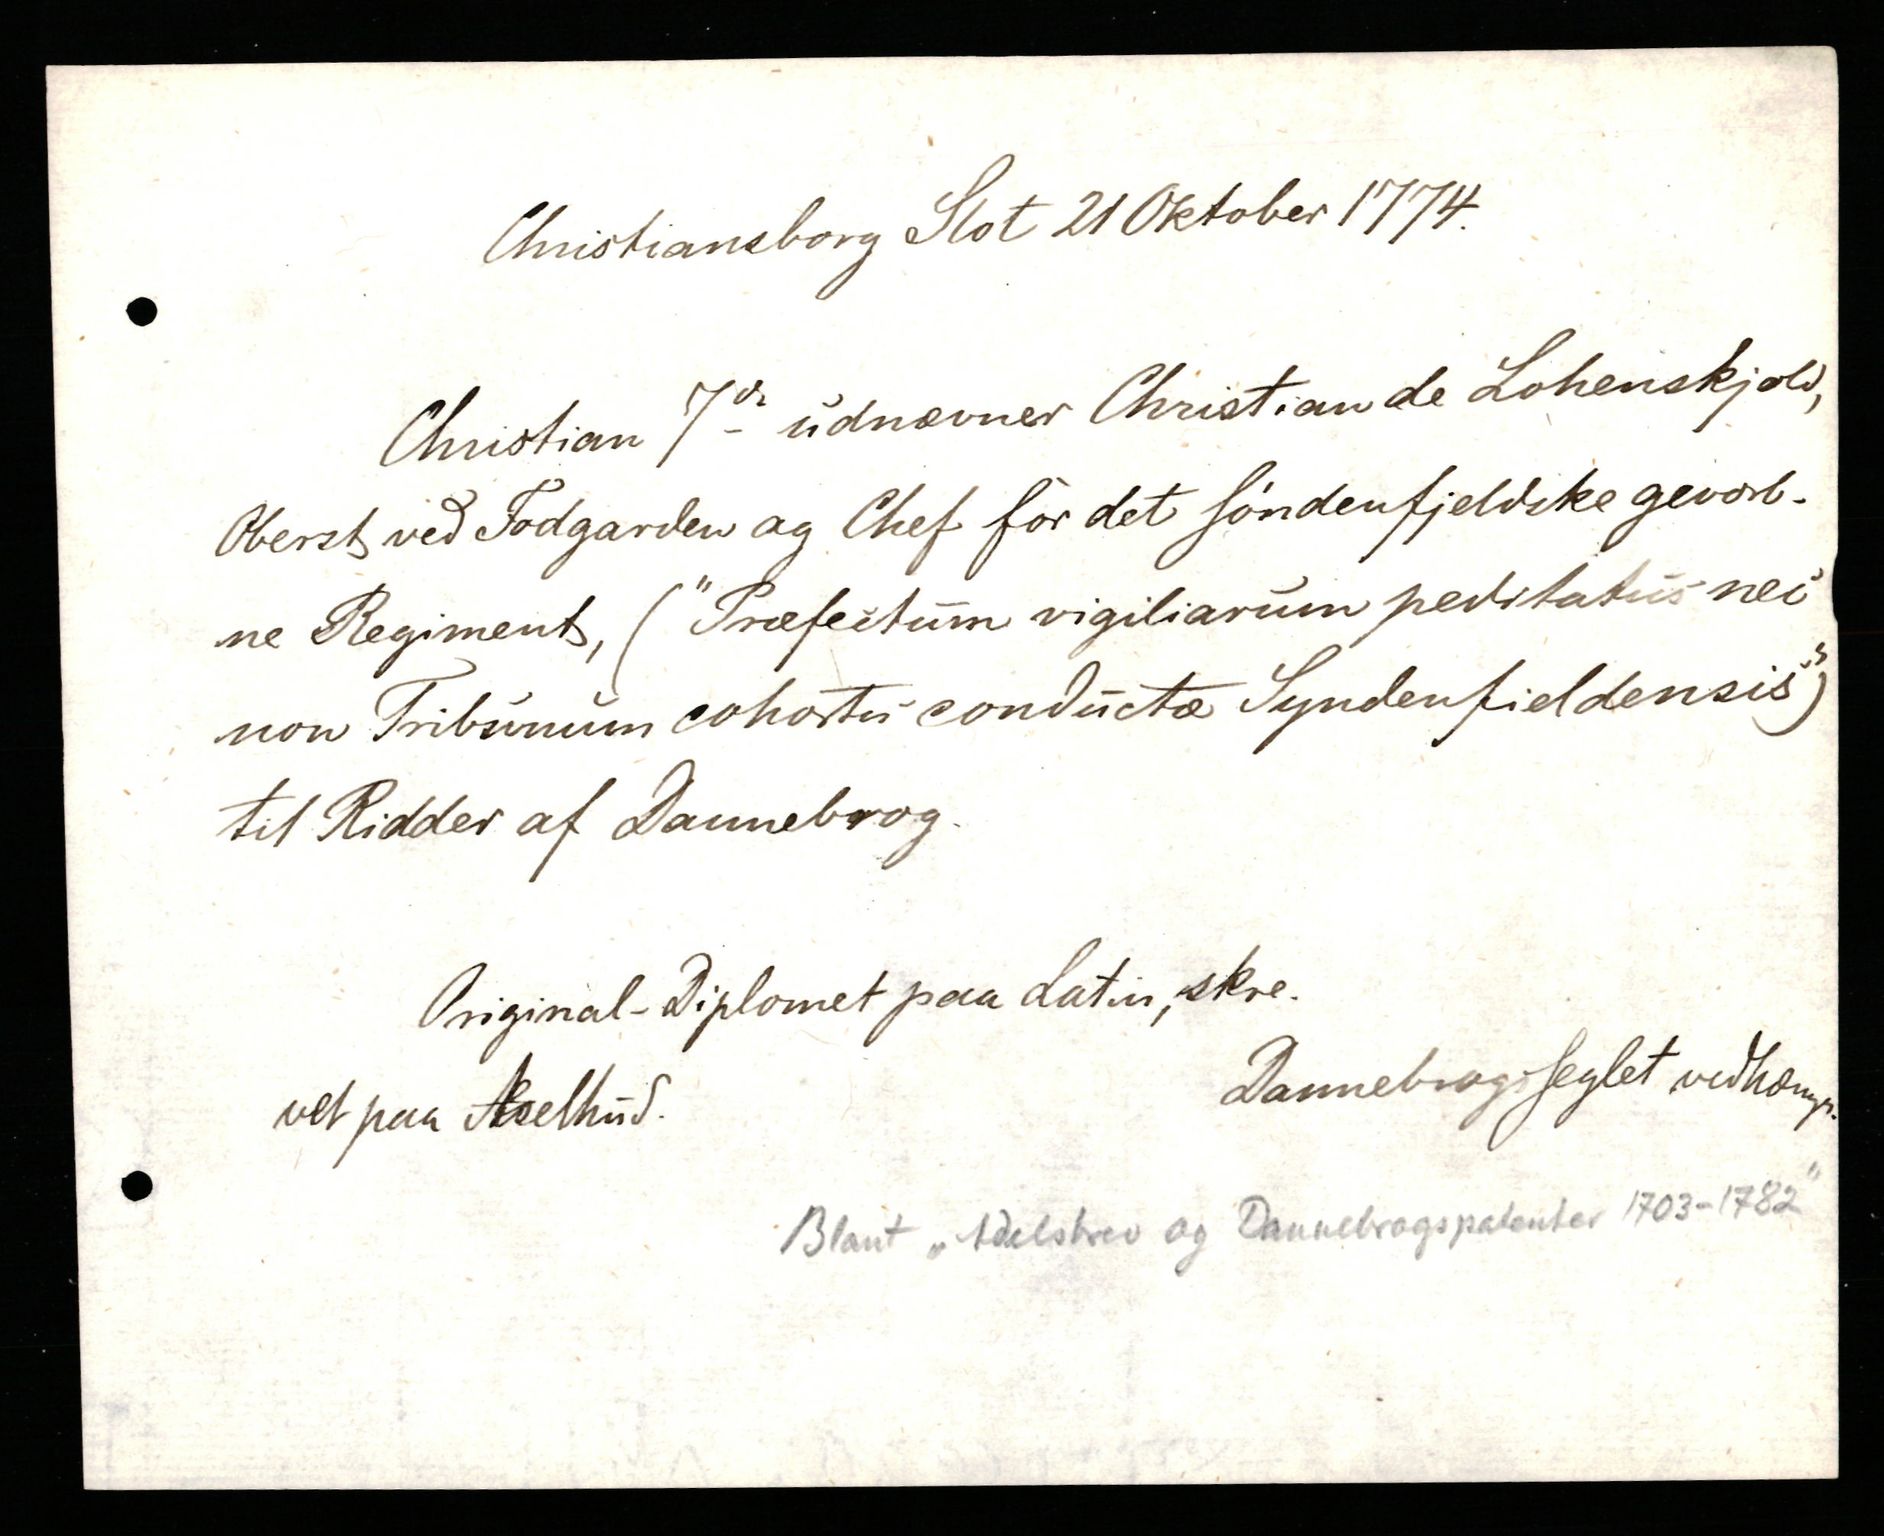 Christiansborg Slot 21 Oktober 1774.
Christian 7de udnævner Christian de Lohenskjold,
Oberst ved Fodgarden og Chef for det søndenfjeldske gevorb-
ne Regiment, ("Præfectum vigiliarum peditatus nec
non Tribunum cohortis conductæ Syndenfieldensis")
til Ridder af Dannebrog.
Original-Diplomet paa Latin, skre-
vet paa Æselhud.
Dannebrogsseglet vedhæng.
Blant „Adelsbrev og Dannebrogspatenter 1703-1782"